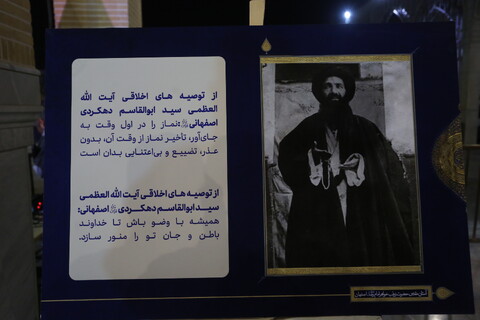 از توصیه های اخلاقی آیت الله
العظمی سید ابوالقاسم دهکردی
اصفهانی: نماز را در اول وقت به
جای‌آور، تأخیر نماز از وقت آن، بدون
عذر، تضییع و بی‌اعتنایی بدان است
از توصیه های اخلاقی آیت الله العظمی
سید ابوالقاسم دهکردی اصفهانی:
همیشه با وضو باش تا خداوند
باطن و جان تو را منور سازد.